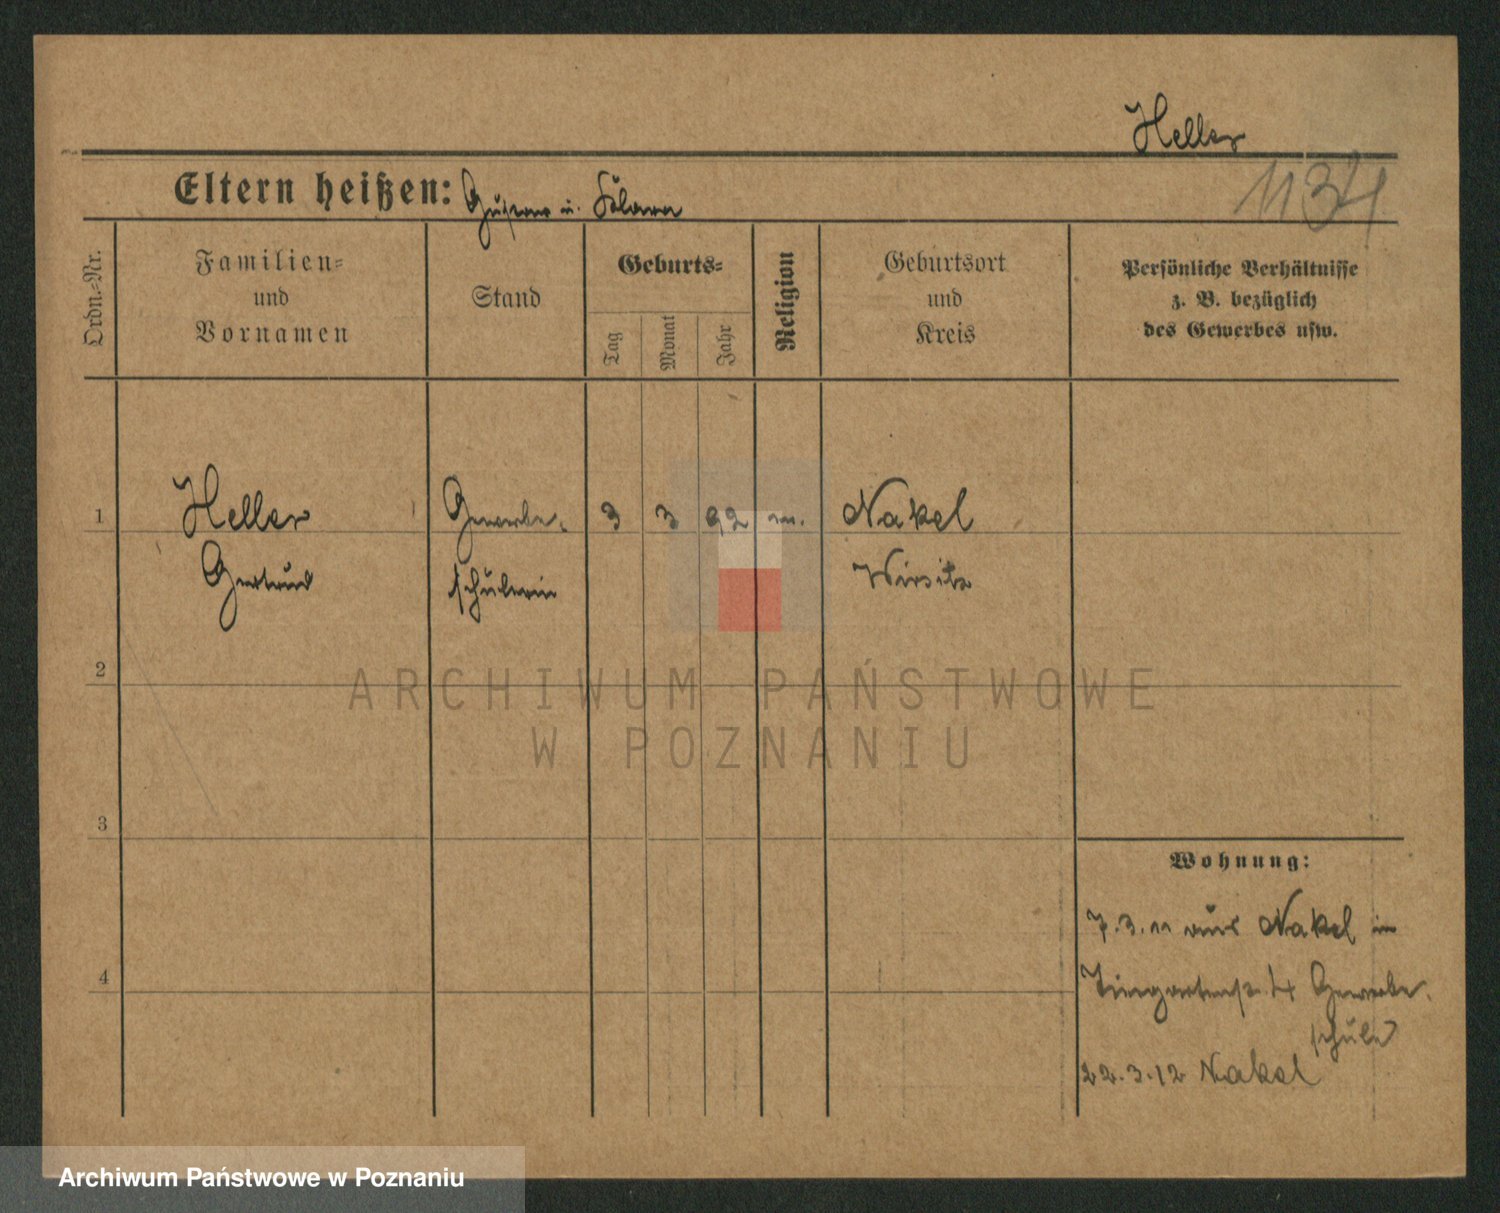 Heller
1134
Eltern heißen: Gustav u. Klara
Ordn.-Nr.
Familien-
und
Vornamen
Stand
Geburts-
Tag
Monat
Jahr
Religion
Geburtsort
und
Kreis
Persönliche Verhältnisse
z. B. bezüglich
des Gewerbes usw.
1 Heller Gewerbe- 3 3 92 m. Nakel
Gertrud schülerin Wirsitz
ARCHIWUM PAŃSTWOWE
W POZNANIU
2
3
Wohnung:
7.3.11 aus Nakel in
4 Tiergartenstr. 4 Gewerbe-
schule
22.3.12 Nakel
Archiwum Państwowe w Poznaniu